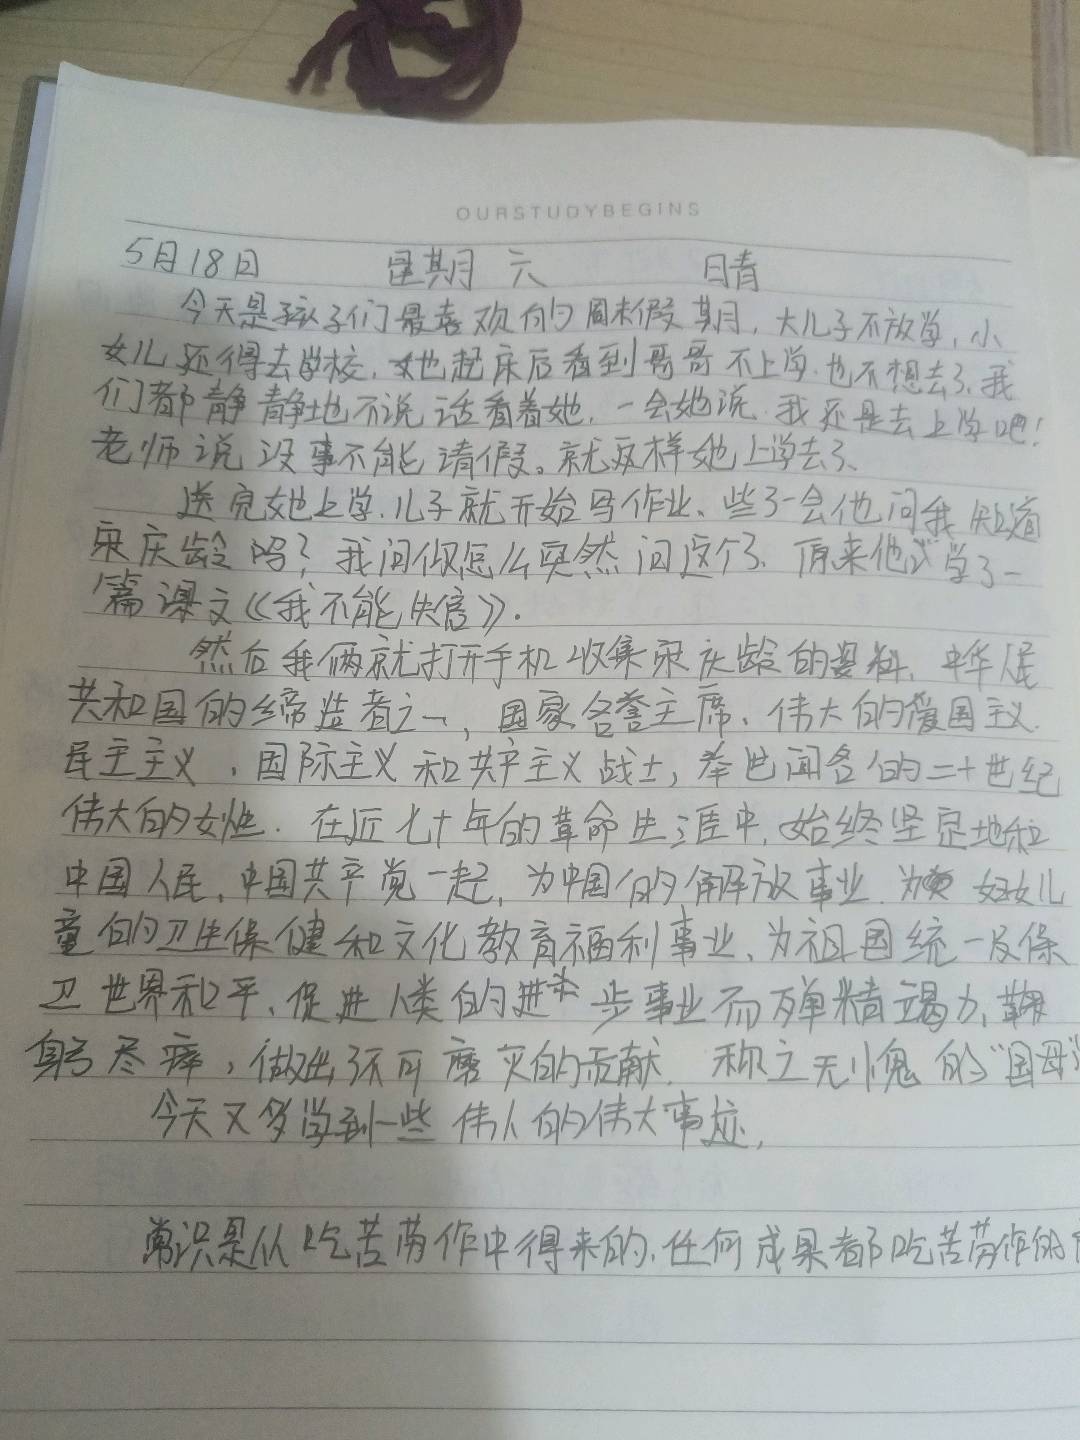 OURSTUDYBEGINS
5月18日 星期六 晴
今天是孩子们最喜欢的周末假期,大儿子不放学,小
女儿还得去学校,她起床后看到哥哥不上学.也不想去了.我
们都静静地不说话看着她.一会她说.我还是去上学吧!
老师说没事不能请假。就这样她上学去了、
送完她上学.儿子就开始写作业、些了一会他问我知道
宋庆龄吗?我问你怎么突然问这个了.原来他学了一
篇课文《我不能失信》.
然后我俩就打开手机收集宋庆龄的资料.中华人民
共和国的缔造者之一,国家名誉主席、伟大的爱国主义.
民主主义,国际主义和共产主义战士,举世闻名的二十世纪
伟大的女性.在近七十年的革命生涯中,始终坚定地和
中国人民,中国共产党一起,为中国的解放事业.为妇女儿
童的卫生保健和文化教育福利事业、为祖国统一及保
卫世界和平,促进人类的进步事业而殚精竭力,鞠
躬尽瘁,做出不可磨灭的贡献.称之无愧的"国母"
今天又多学到一些伟人的伟大事迹,
常识是从吃苦劳作中得来的.任何成果都吃苦劳作的